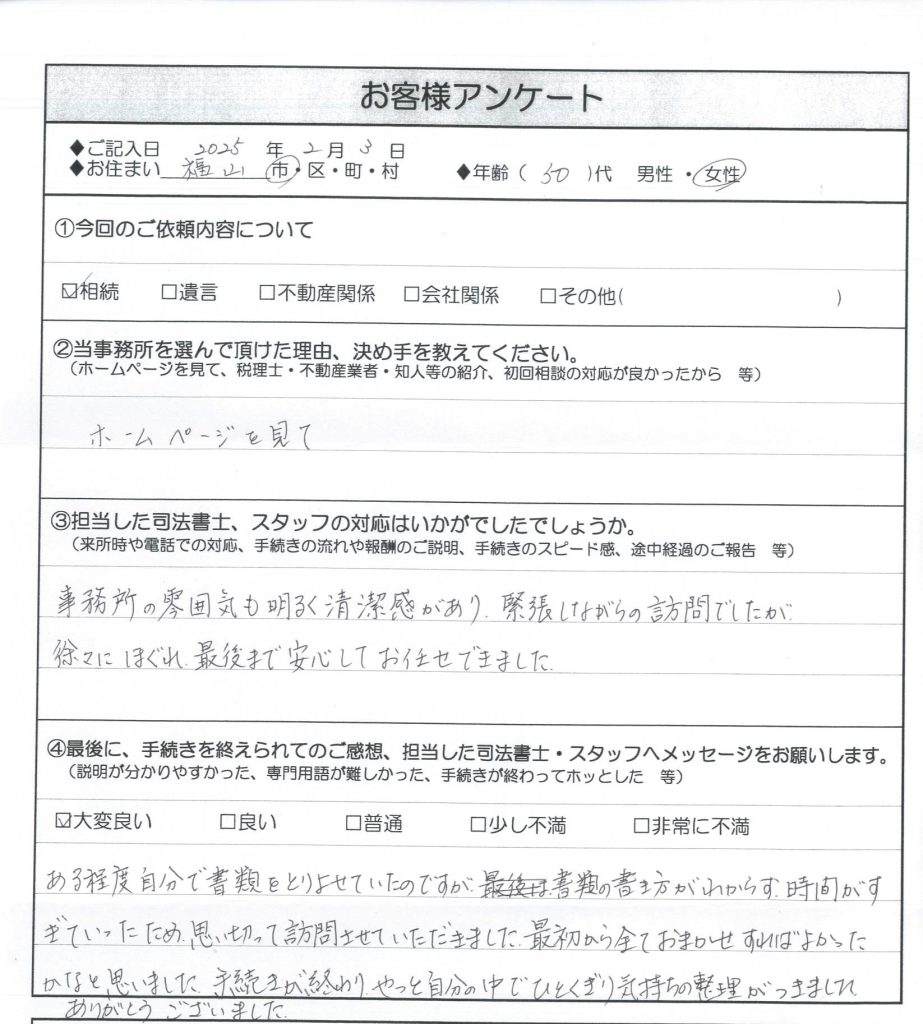 お客様アンケート
◆ご記入日 2025 年 2 月 3 日
◆お住まい 福山 市・区・町・村 ◆年齢( 50 )代 男性・女性
①今回のご依頼内容について
☑相続 □遺言 □不動産関係 □会社関係 □その他( )
②当事務所を選んで頂けた理由、決め手を教えてください。
(ホームページを見て、税理士・不動産業者・知人等の紹介、初回相談の対応が良かったから 等)
ホームページを見て
③担当した司法書士、スタッフの対応はいかがでしたでしょうか。
(来所時や電話での対応、手続きの流れや報酬のご説明、手続きのスピード感、途中経過のご報告 等)
事務所の雰囲気も明るく清潔感があり、緊張しながらの訪問でしたが
徐々にほぐれ、最後まで安心してお任せできました。
④最後に、手続きを終えられてのご感想、担当した司法書士・スタッフへメッセージをお願いします。
(説明が分かりやすかった、専門用語が難しかった、手続きが終わってホッとした 等)
☑大変良い □良い □普通 □少し不満 □非常に不満
ある程度自分で書類をとりよせていたのですが、最後は書類の書き方がわからず、時間がす
ぎていったため、思い切って訪問させていただきました。最初から全ておまかせすればよかった
かなと思いました。手続きが終わり、やっと自分の中でひとくぎり気持ちの整理がつきました。
ありがとうございました。